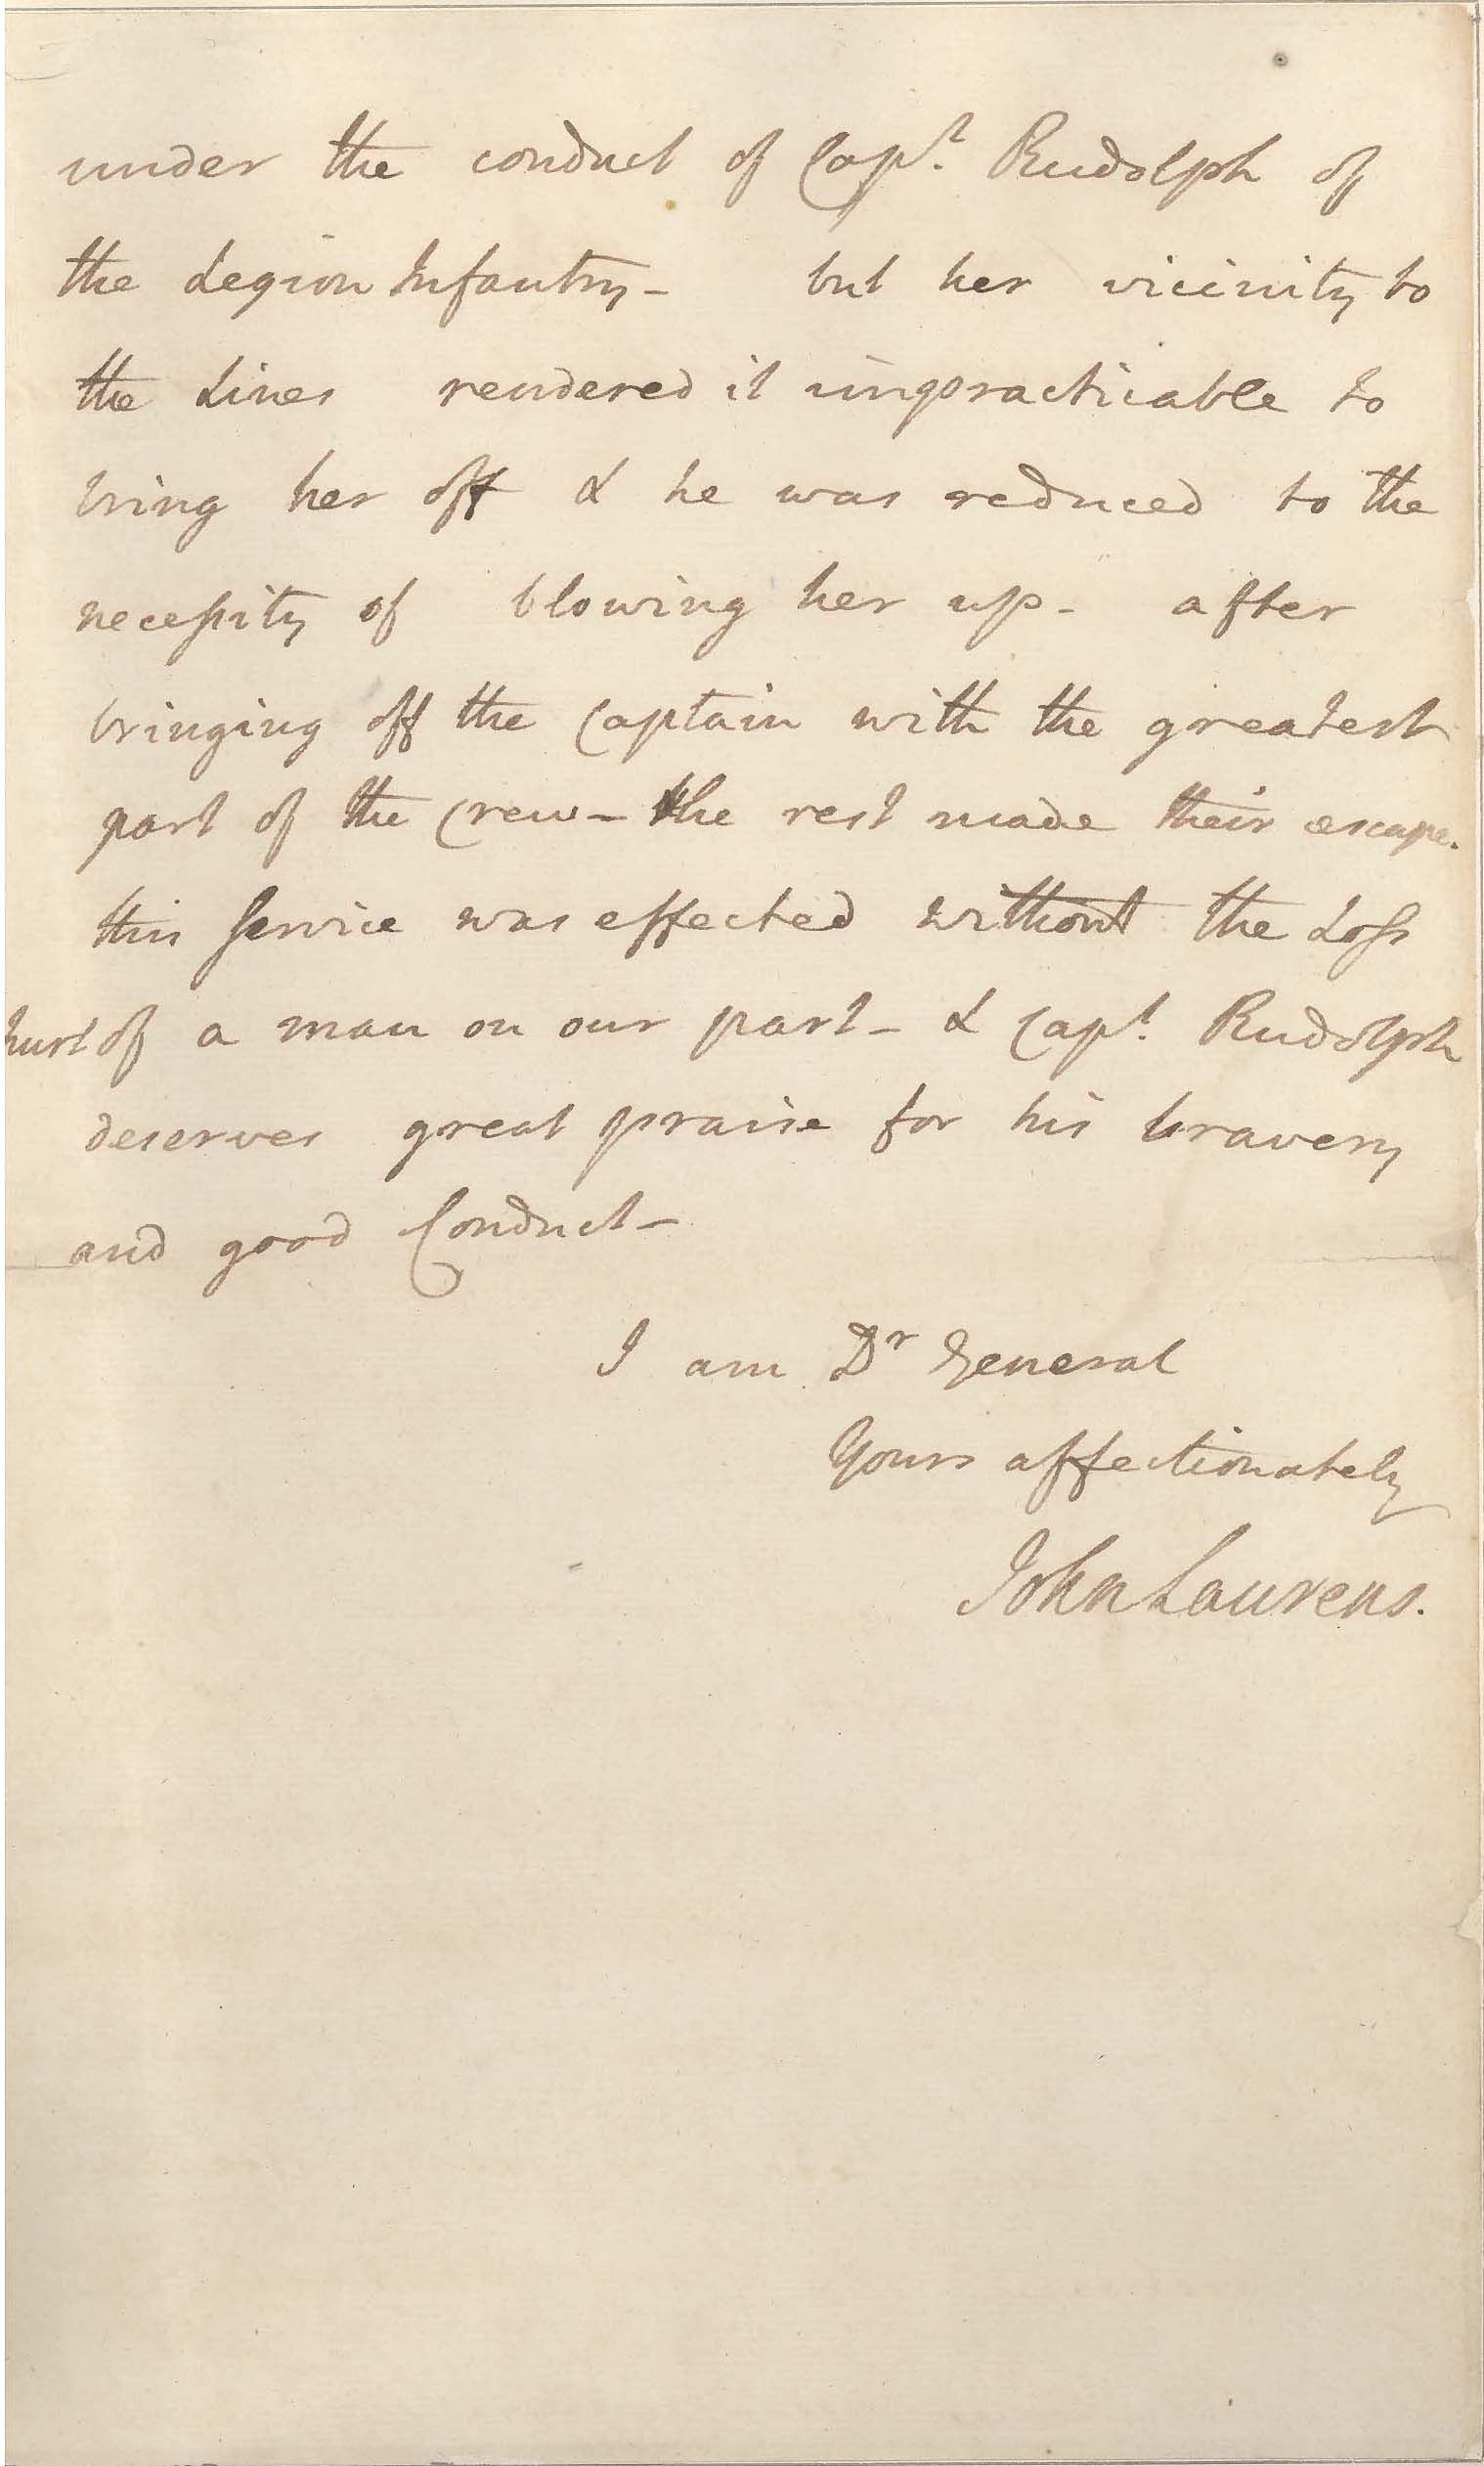 under the conduct of Capt. Rudolph of
the Legion Infantry - but her vicinity to
the Lines rendered it impracticable to
bring her off & he was reduced to the
necessity of blowing her up - after
bringing off the Captain with the greatest
part of the Crew - the rest made their escape.
this Service was effected without the Loss
hurt of a man on our part - & Capt. Rudolph
deserves great praise for his bravery
and good Conduct -
I am Dr General
Yours affectionately
John Laurens.